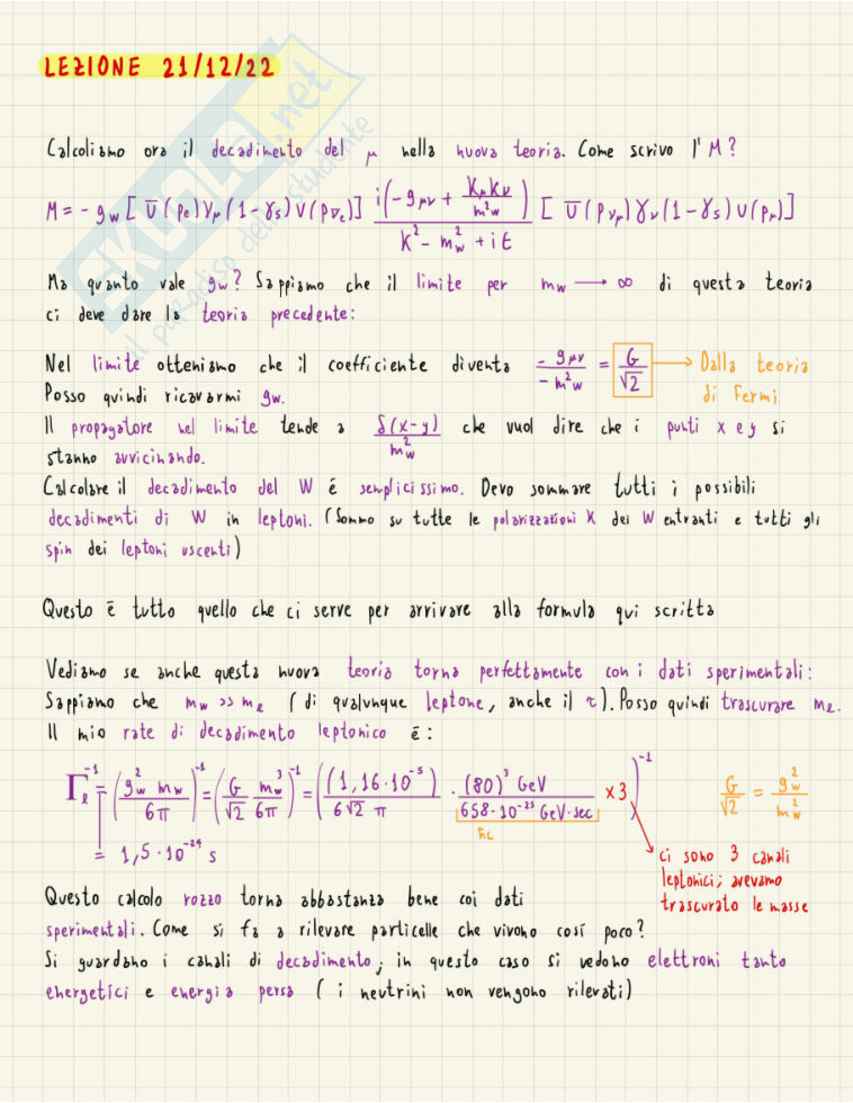 LEZIONE 21/12/22
Calcoliamo ora il decadimento del μ nella nuova teoria. Come scrivo l'M?
M = - g_w [ ū(p_e) γ_μ (1-γ_5) v(p_ν̄_e) ] i(-g_μν + K_μ K_ν / m²_w) / (K² - m²_w + iε) [ ū(p_ν_μ) γ_ν (1-γ_5) u(p_μ) ]
Ma quanto vale g_w? Sappiamo che il limite per m_w → ∞ di questa teoria
ci deve dare la teoria precedente:
Nel limite otteniamo che il coefficiente diventa - g_μν / - m²_w = G/√2 → Dalla teoria
di Fermi
Posso quindi ricavarmi g_w.
Il propagatore nel limite tende a δ(x-y) / m²_w che vuol dire che i punti x e y si
stanno avvicinando.
Calcolare il decadimento del W é semplicissimo. Devo sommare tutti i possibili
decadimenti di W in leptoni. (Sommo su tutte le polarizzazioni K dei W entranti e tutti gli
spin dei leptoni uscenti)
Questo é tutto quello che ci serve per arrivare alla formula qui scritta
Vediamo se anche questa nuova teoria torna perfettamente con i dati sperimentali:
Sappiamo che m_w >> m_ℓ (di qualunque leptone, anche il τ). Posso quindi trascurare m_ℓ.
Il mio rate di decadimento leptonico é:
Γ_ℓ^-1 = (g²_w m_w / 6π)^-1 = (G/√2 m³_w / 6π)^-1 = ((1,16·10^-5) / 6√2 π · (80)³ GeV / 658·10^-25 GeV·sec × 3)^-1
G/√2 = g²_w / m²_w
ħc
= 1,5·10^-24 s
ci sono 3 canali
leptonici; avevamo
trascurato le masse
Questo calcolo rozzo torna abbastanza bene coi dati
sperimentali. Come si fa a rilevare particelle che vivono cosí poco?
Si guardano i canali di decadimento; in questo caso si vedono elettroni tanto
energetici e energia persa ( i neutrini non vengono rilevati)
SKUOLA.net
il paradiso dello studente